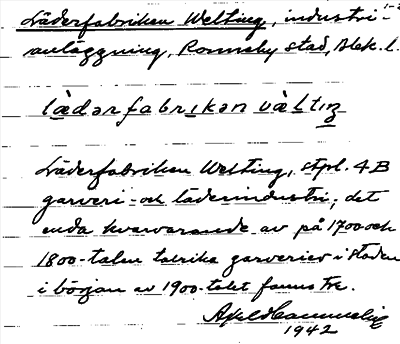 Läderfabriken Welting, industri-
anläggning, Ronneby stad, Blek. l.
lädərfabrikən vältiŋ
Läderfabriken Welting, stpl. 4B
garveri- och läderindustri, det
enda kvarvarande av på 1700 och
1800-talen talrika garverier i staden
i början av 1900-talet fanns tre.
Axel
1942